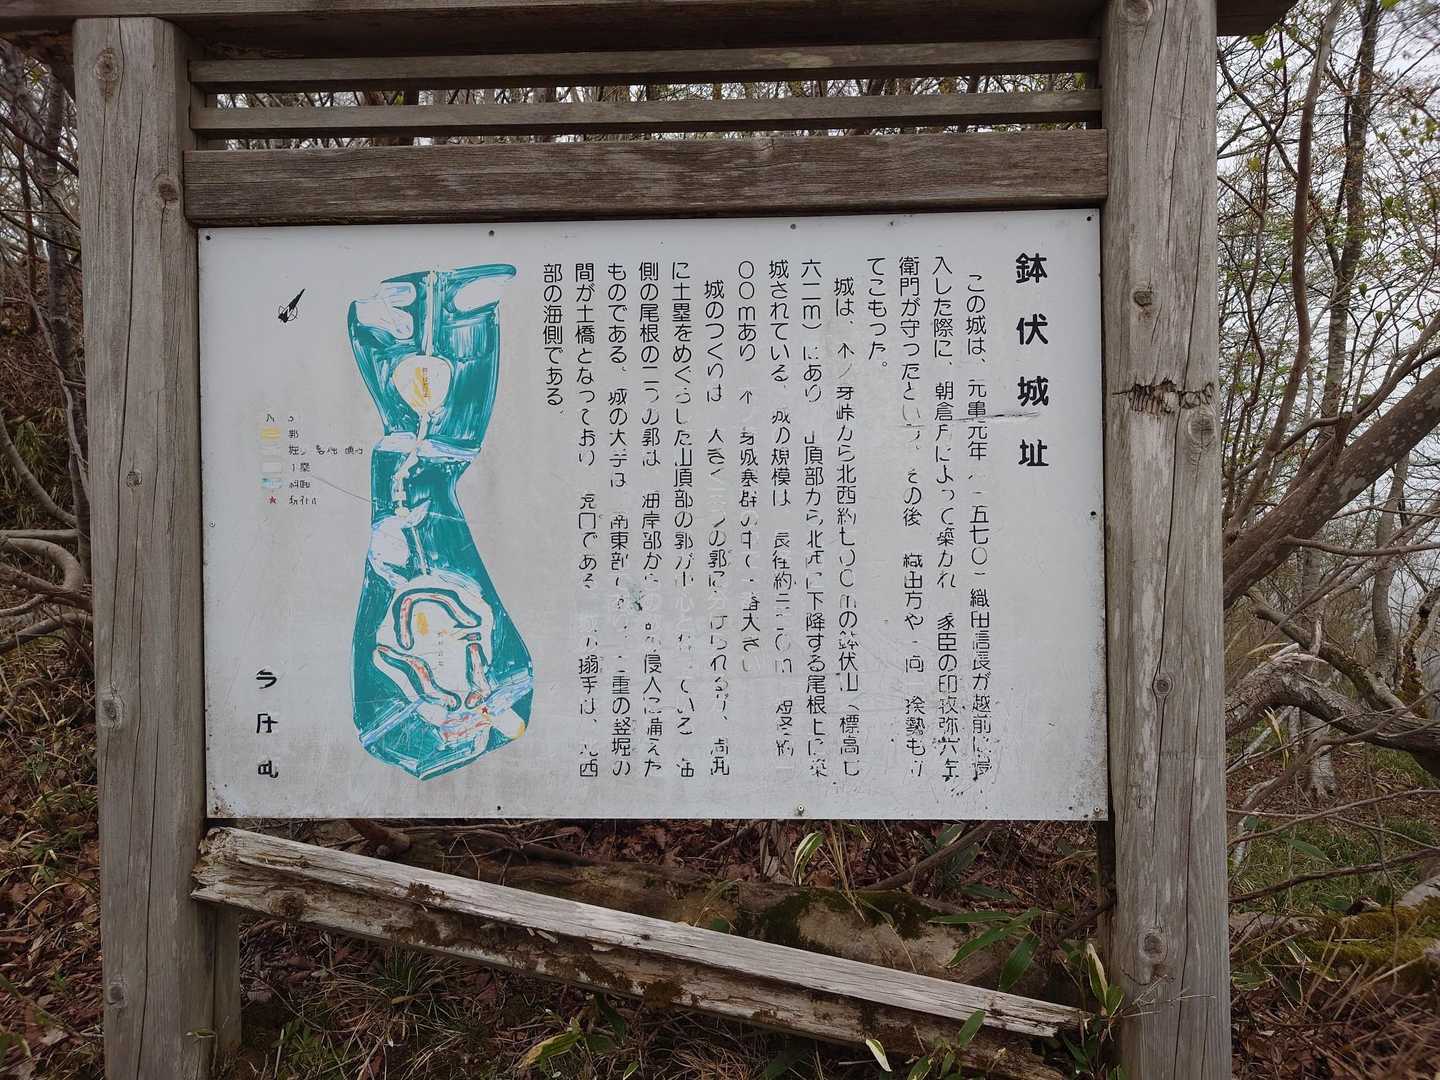 鉢伏城址
この城は、元亀元年 五七〇 織田信長が越前に侵
入した際に、朝倉氏によって築かれ 家臣の印牧弥六左
衛門が守ったという。その後 織田方や一向一揆勢もり
てこもった。
城は、木ノ芽峠から北西約七〇〇mの鉢伏山 標高七
六二m)にあり 山頂部から北西に下降する尾根上に築
城されている。城の規模は 長径約三 〇m 短径約一
〇〇mあり 木ノ芽城塞群の中で一番大きい
城のつくりは 大きく二つの郭に分けられるが、南東
に土塁をめぐらした山頂部の郭が中心となっている 西
側の尾根の二つの郭は 海岸部からの 侵入に備えた
ものである。城の大手は 南東部 二重の竪堀の
間が土橋となっており 虎口である 搦手は、北西
部の海側である。
郭
土塁
斜面
今庄町